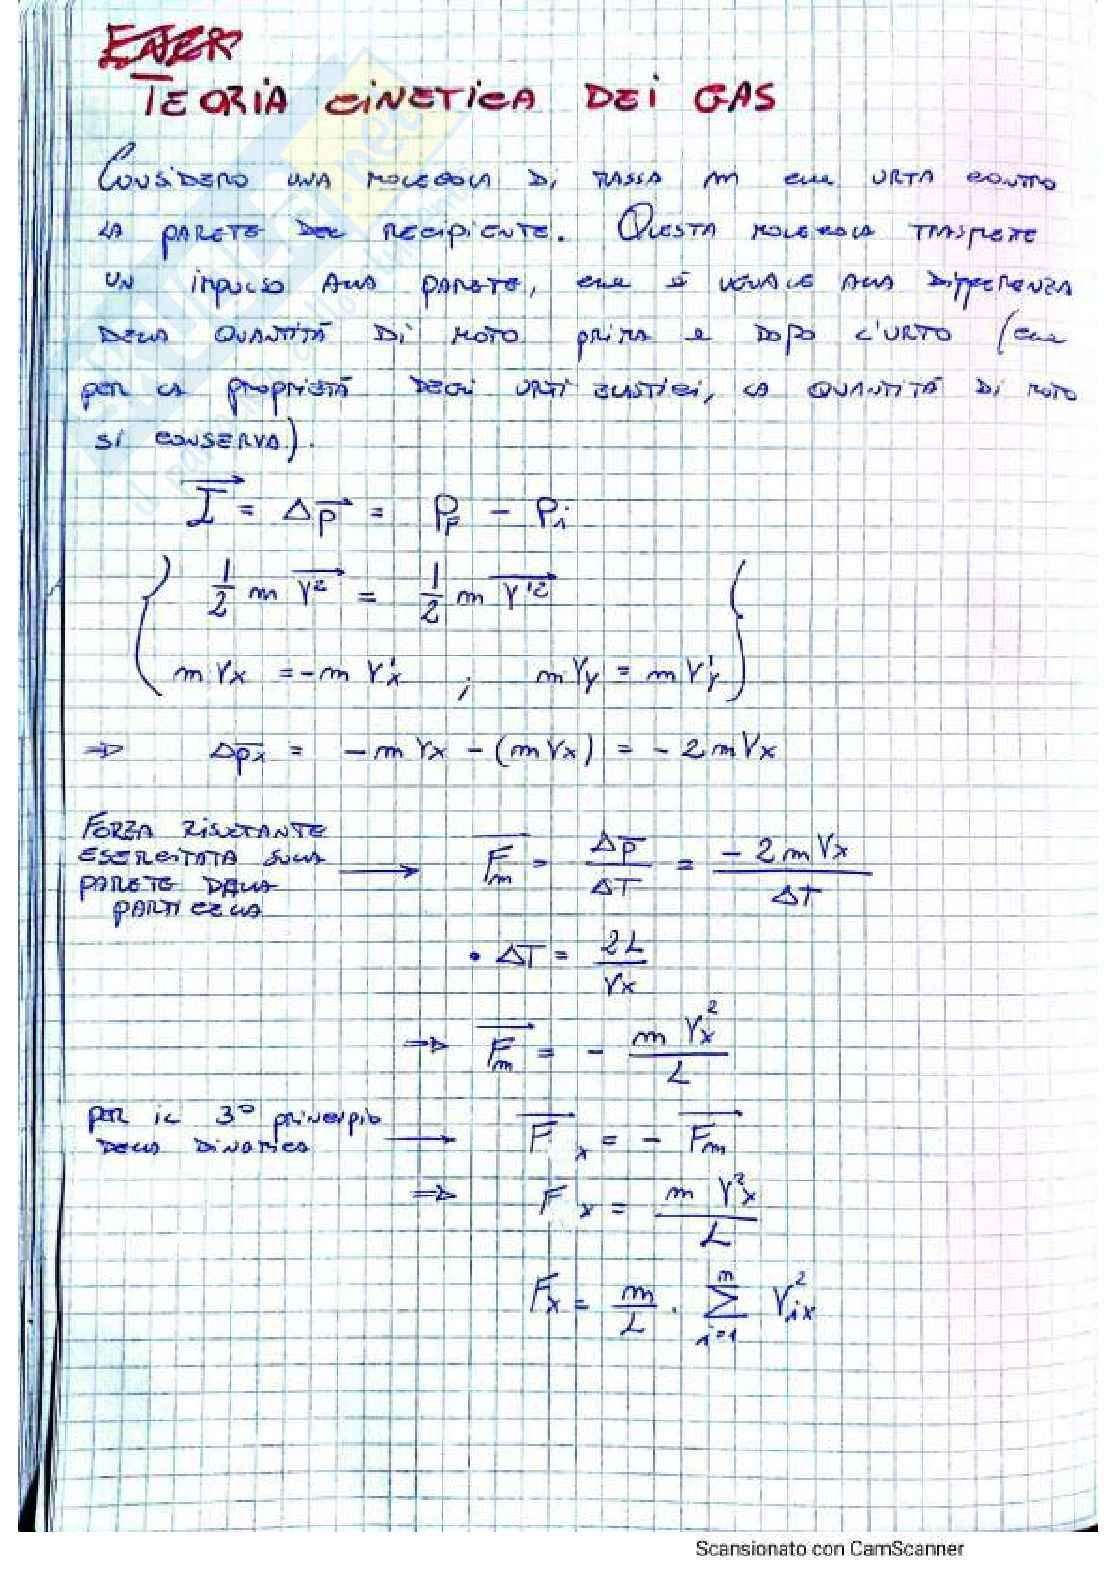 TEORIA CINETICA DEI GAS
CONSIDERO UNA MOLECOLA DI MASSA m CHE URTA CONTRO
LA PARETE DEL RECIPIENTE. QUESTA MOLECOLA TRASMETTE
UN IMPULSO ALLA PARETE, CHE È UGUALE ALLA DIFFERENZA
DELLA QUANTITÀ DI MOTO PRIMA E DOPO L'URTO (CHE
PER LA PROPRIETÀ DEGLI URTI ELASTICI, LA QUANTITÀ DI MOTO
SI CONSERVA).
I⃗ = Δp⃗ = P_F - P_i
{ 1/2 m V² = 1/2 m V'²
m Vx = -m V'x ; m Vy = m V'y }
⇒ Δpx = -m Vx - (m Vx) = -2 m Vx
FORZA RISULTANTE
ESERCITATA SULLA
PARETE DALLA
PARTICELLA → F_m = Δp/ΔT = -2 m Vx/ΔT
• ΔT = 2L/Vx
⇒ F_m = - m Vx²/L
PER IL 3° PRINCIPIO
DELLA DINAMICA → F_x = - F_m
⇒ F_x = m V²x/L
F_x = m/L · Σ_{i=1}^{n} V²_ix
Scansionato con CamScanner